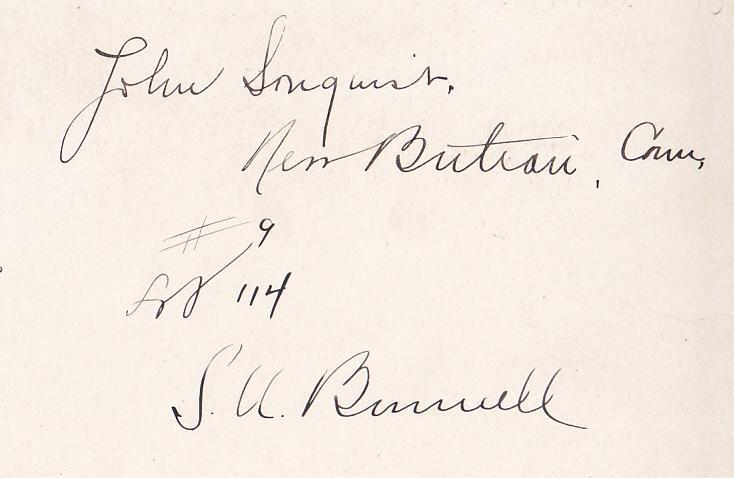 John Sonquist.
New Britain, Conn.
# 9
114
S. U. Bunnell